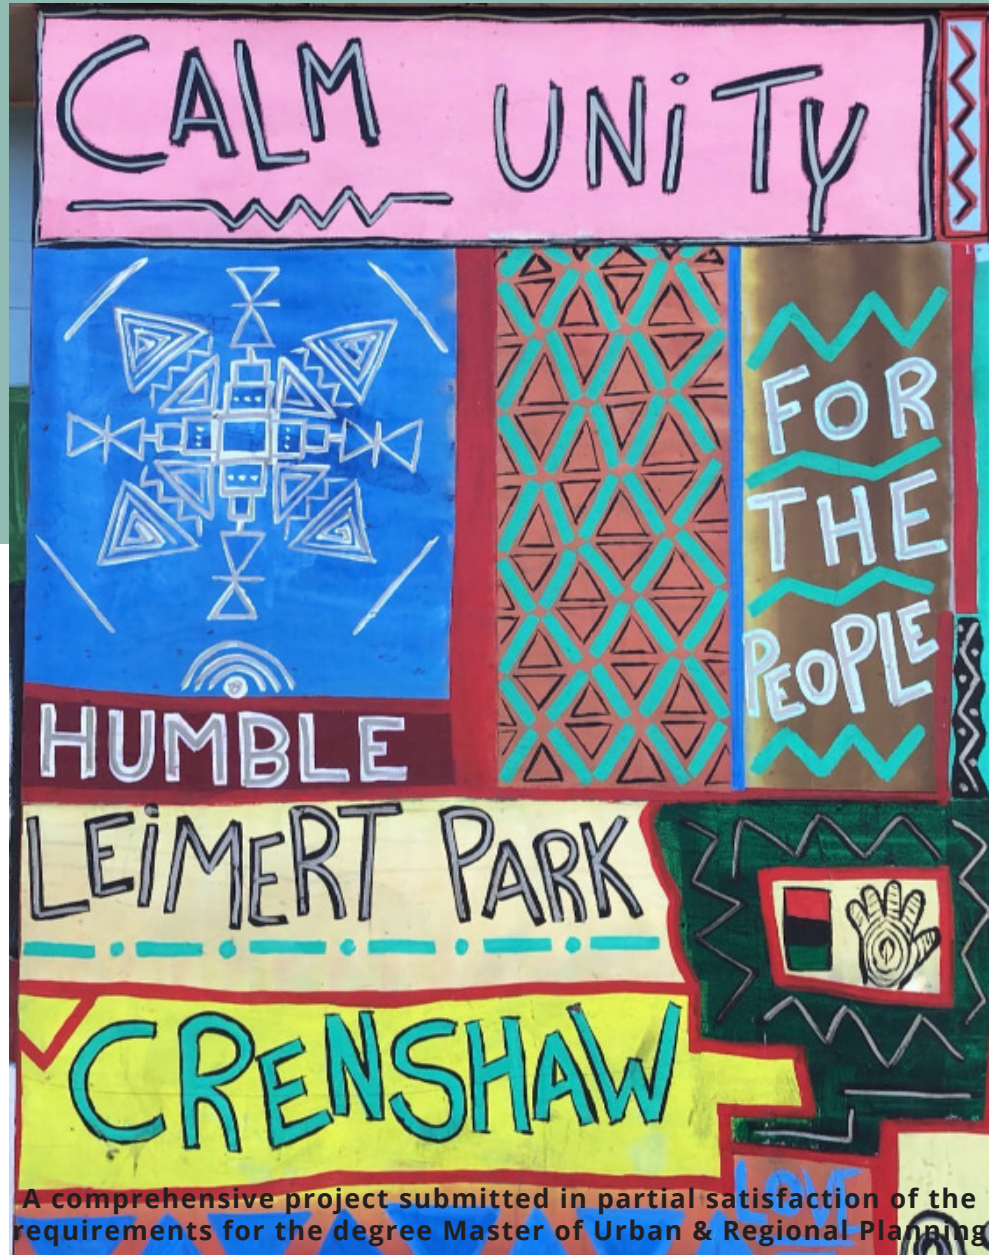 CALM UNiTY
FOR
THE
PEOPLE
HUMBLE
LEiMERT PARK
CRENSHAW
LOVE
A comprehensive project submitted in partial satisfaction of the
requirements for the degree Master of Urban & Regional Planning